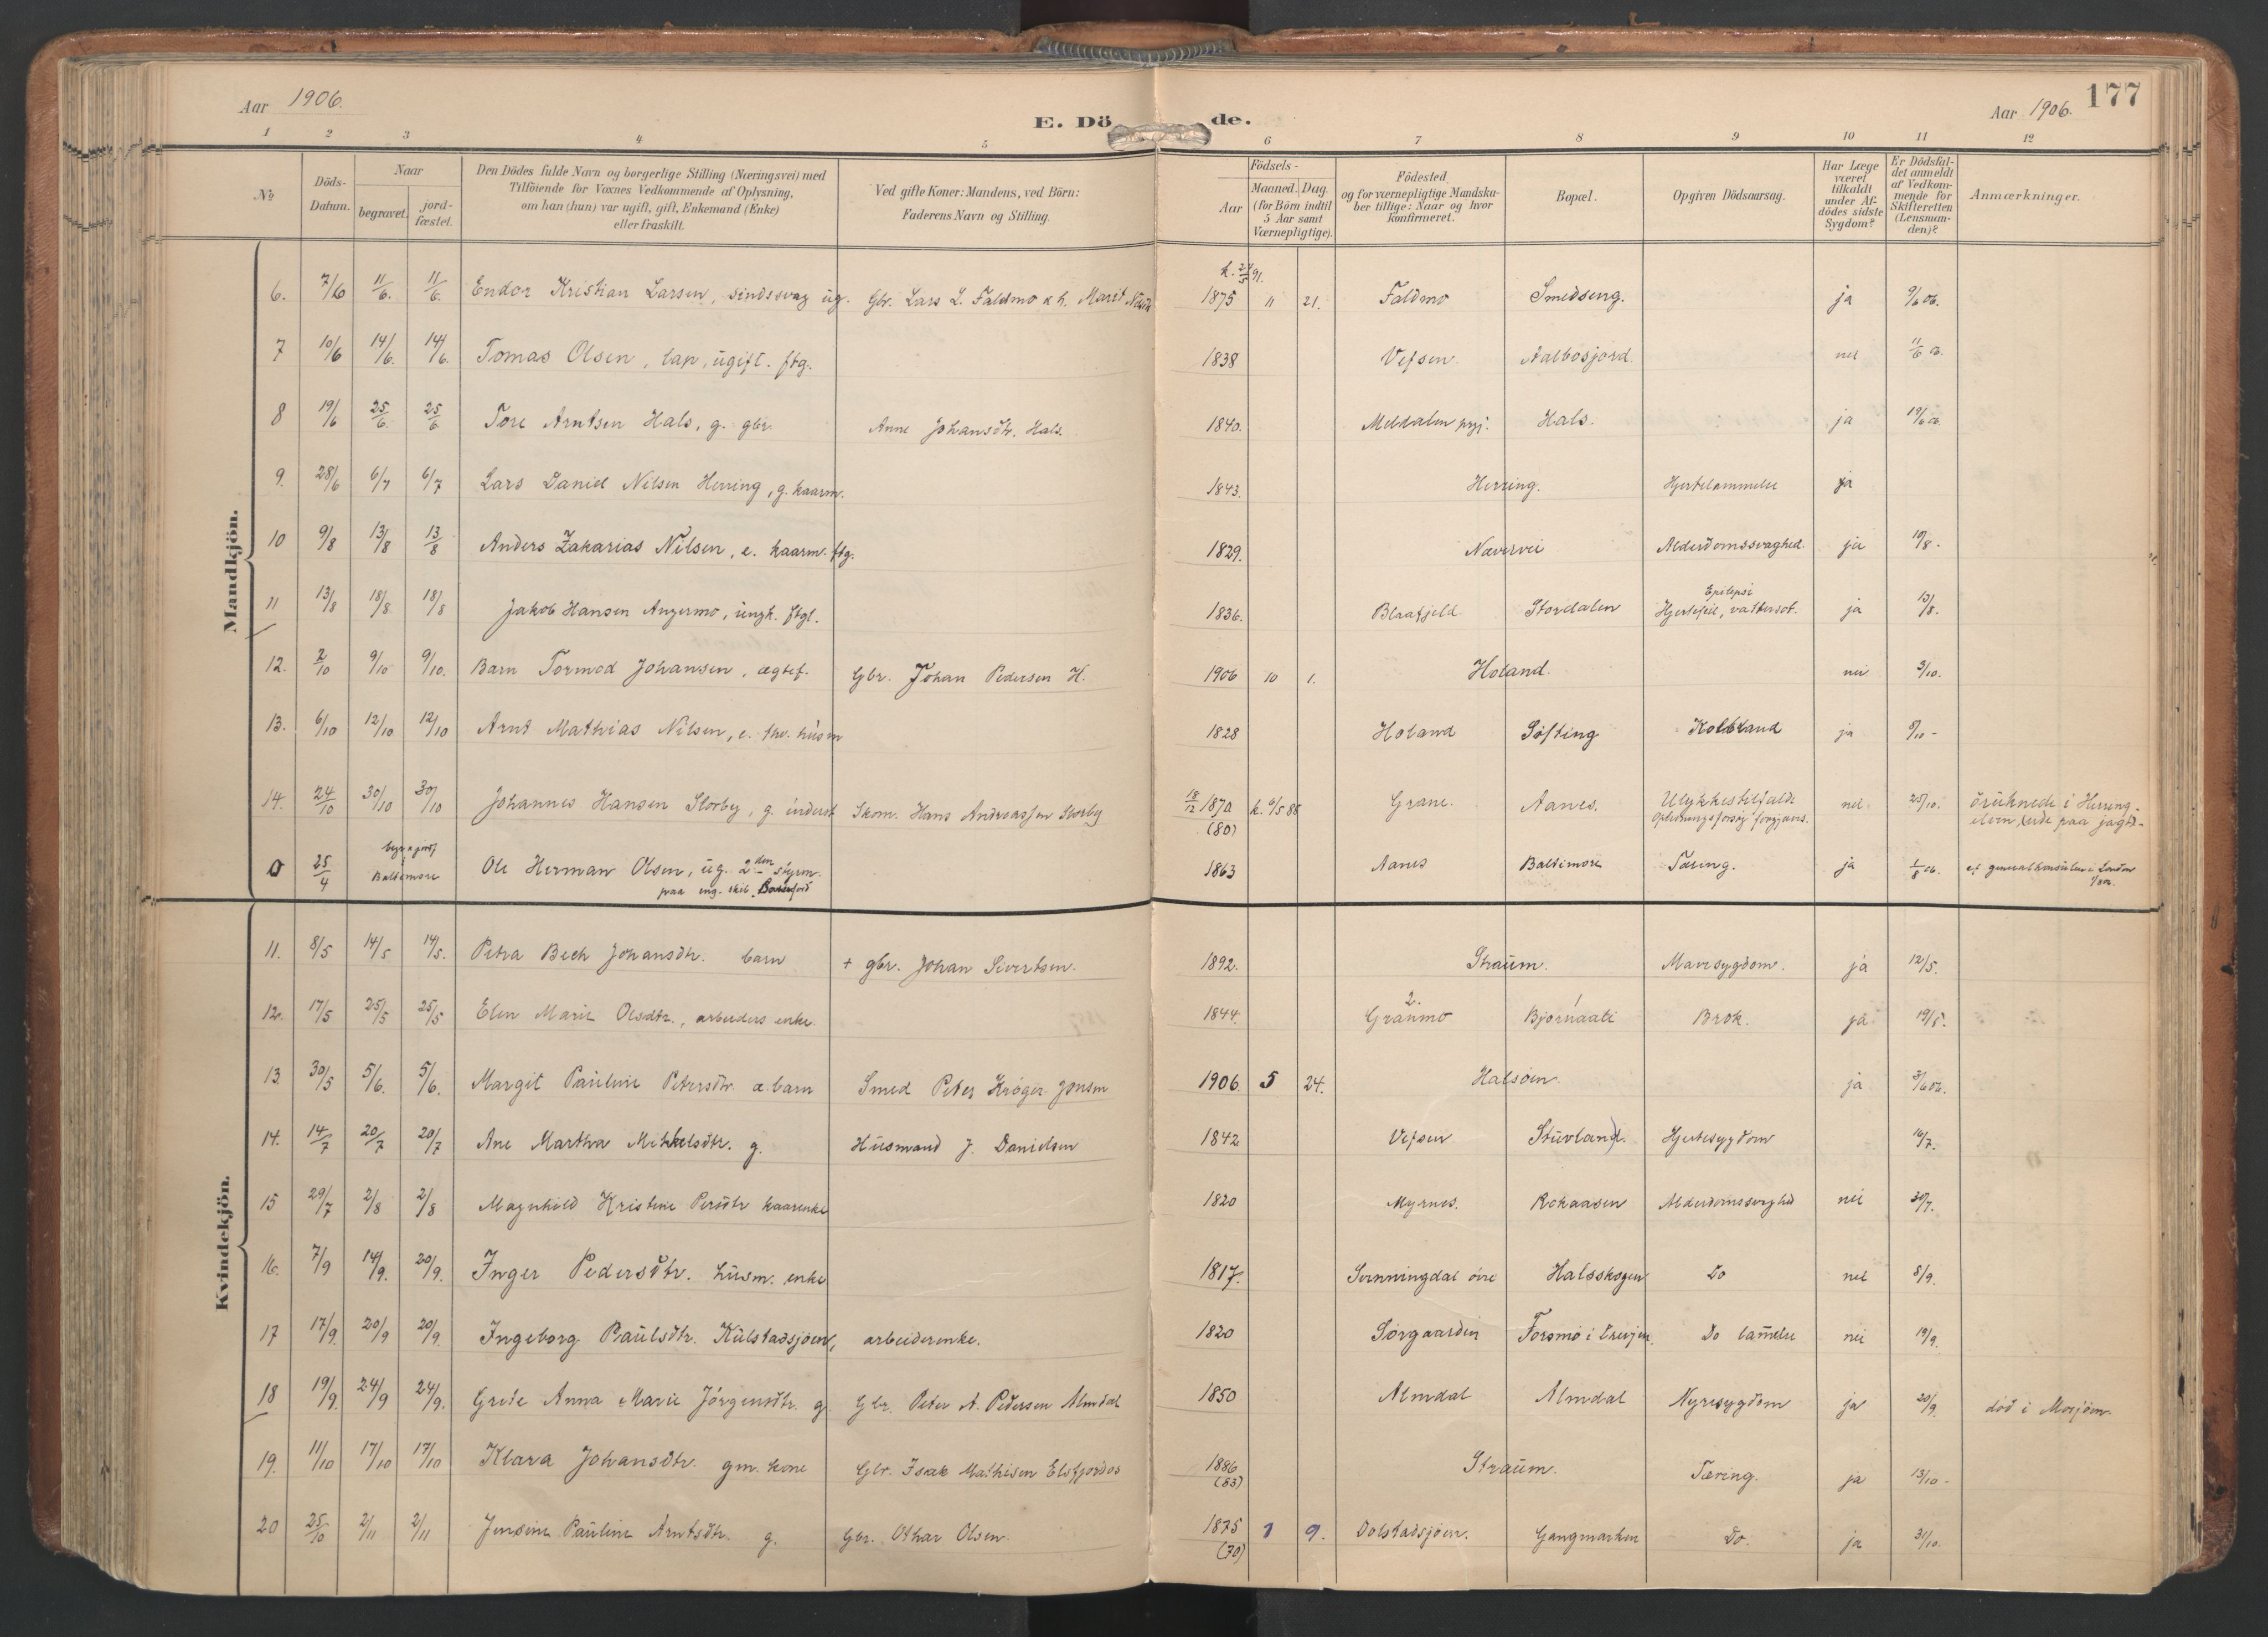 Aar 1906.
E. Dö de.
Aar 1906.
177
1 2 3 4 5 6 7 8 9 10 11 12
No
Döds-Datum.
Naar
begravet.
jord-fæstet.
Den Dödes fulde Navn og borgerlige Stilling (Næringsvei) med
Tilföiende for Voxnes Vedkommende af Oplysning,
om han (hun) var ugift, gift, Enkemand (Enke)
eller fraskilt.
Ved gifte Koner: Mandens, ved Börn:
Faderens Navn og Stilling.
Födsels-
Aar
Maaned. Dag.
(for Börn indtil
5 Aar samt
Værnepligtige).
Födested,
og for værnepligtige Mandska-
ber tillige: Naar og hvor
konfirmeret.
Bopæl.
Opgiven Dödsaarsag.
Har Læge
været
tilkaldt
under Af-
dödes sidste
Sygdom?
Er Dödsfal-
det anmeldt
af Vedkom-
mende for
Skifteretten
(Lensman-
den)?
Anmærkninger.
Mandkjön.
6. 7/6 11/6. 11/6. Endor Kristian Larsen, sindssvag ug. Gbr. Lars L. Faldmo & h. Marit 1875 11 21. Faldmo Smedseng. ja 9/6 06.
7 10/6 14/6. 14/6. Tomas Olsen, lap, ugift. ftg. 1838 Vefsen. nei 11/6 06.
8 19/6 25/6. 25/6 Tore Arntsen Hals, g. gbr. Anne Johansdtr. Hals. 1840. Meldalen prgj. Hals. ja 19/6 06.
9. 28/6 6/7 6/7 Lars Daniel Nilsen Herring, g. kaarm. 1843. Herring. Hjertelammelse ja
10 9/8 13/8 13/8 Anders Zakarias Nilsen, e. kaarm. ftg. 1829. Næverei Alderdomssvaghed. ja 10/8.
11 13/8 18/8 18/8 Jakob Hansen Angermo, ungk. ftgl. 1836. Blaafjeld Stordalen Epilepsi Hjertefeil, vattersot. ja 13/8.
12. 2/10 9/10 9/10. Barn Tormod Johansen, ægtef. Gbr. Johan Pedersen H. 1906 10 1. Holand. nei 3/10.
13. 6/10 12/10 12/10 Arnt Mathias Nilsen, e. fhv. husm 1828 Holand Søfting Koldbrand ja 8/10 -
14. 24/10 30/10 30/10 Johannes Hansen Storby, g. inderst Skom. Hans Andreassen Storby 18/12 1870 (80) Grane. Aanes. Ulykkestilfælde Oplivningsforsøg forgjæves. nei 25/10. druknede i Herring-
elven paa jagt.
0 25/4 Baltimore Ole Herman Olsen, ug. 2den styrm.
paa eng. skib. 1863 Aanes Baltimore Tæring. ja 1/8 06. generalkonsulen i London
Kvindekjön.
11. 8/5 14/5 14/5. Petra Bech Johansdtr. barn + gbr. Johan Sivertsen. 1892. Straum. Mavesygdom. ja 12/5.
12. 17/5 25/5 25/5 Elen Marie Olsdtr., arbeiders enke. 1844. Granmo Bjørnaali Brok. ja 19/5.
13 30/5 5/6. 5/6. Margit Pauline Petersdtr. æ. barn Smed Peter Krøger Jonsen 1906 5 24. Halsøen. ja 3/6 06.
14. 14/7 20/7 20/7 Ane Martha Mikkelsdtr. g. Husmand J. Danielsen 1842 Vefsen Stuvland. Hjertesygdom 16/7.
15 29/7 2/8 2/8 Magnhild Kristine Persdtr kaarenke 1820 Myrnes. Alderdomssvaghed nei 30/7.
16. 7/9 14/9. 20/9. Inger Pedersdtr. husm. enke 1817. Svenningdal øvre Halsskogen Do nei 8/9.
17 17/9. 20/9 20/9. Ingeborg Paulsdtr. Kulstadsjøen, arbeiderenke. 1820 Sørgaarden Forsmo i Drevjen. Do lamelse nei 19/9.
18 19/9. 24/9 24/9. Grete Anna Marie Jørgensdtr. g Gbr. Peter A. Pedersen Almdal 1850 Almdal Almdal Nyresygdom ja 20/9. død i Mosjøen.
19. 11/10 17/10 17/10 Klara Johansdtr. gm. kone Gbr. Isak Mathisen Elsfjordos 1886 (83) Straum. Tæring. ja 13/10 -
20 25/10 2/11 2/11 Jensine Pauline Arntsdtr. g. Gbr. Othar Olsen. 1875 (70) 1 9. Dolstadsjøen. Gangmarken Do. ja 31/10.